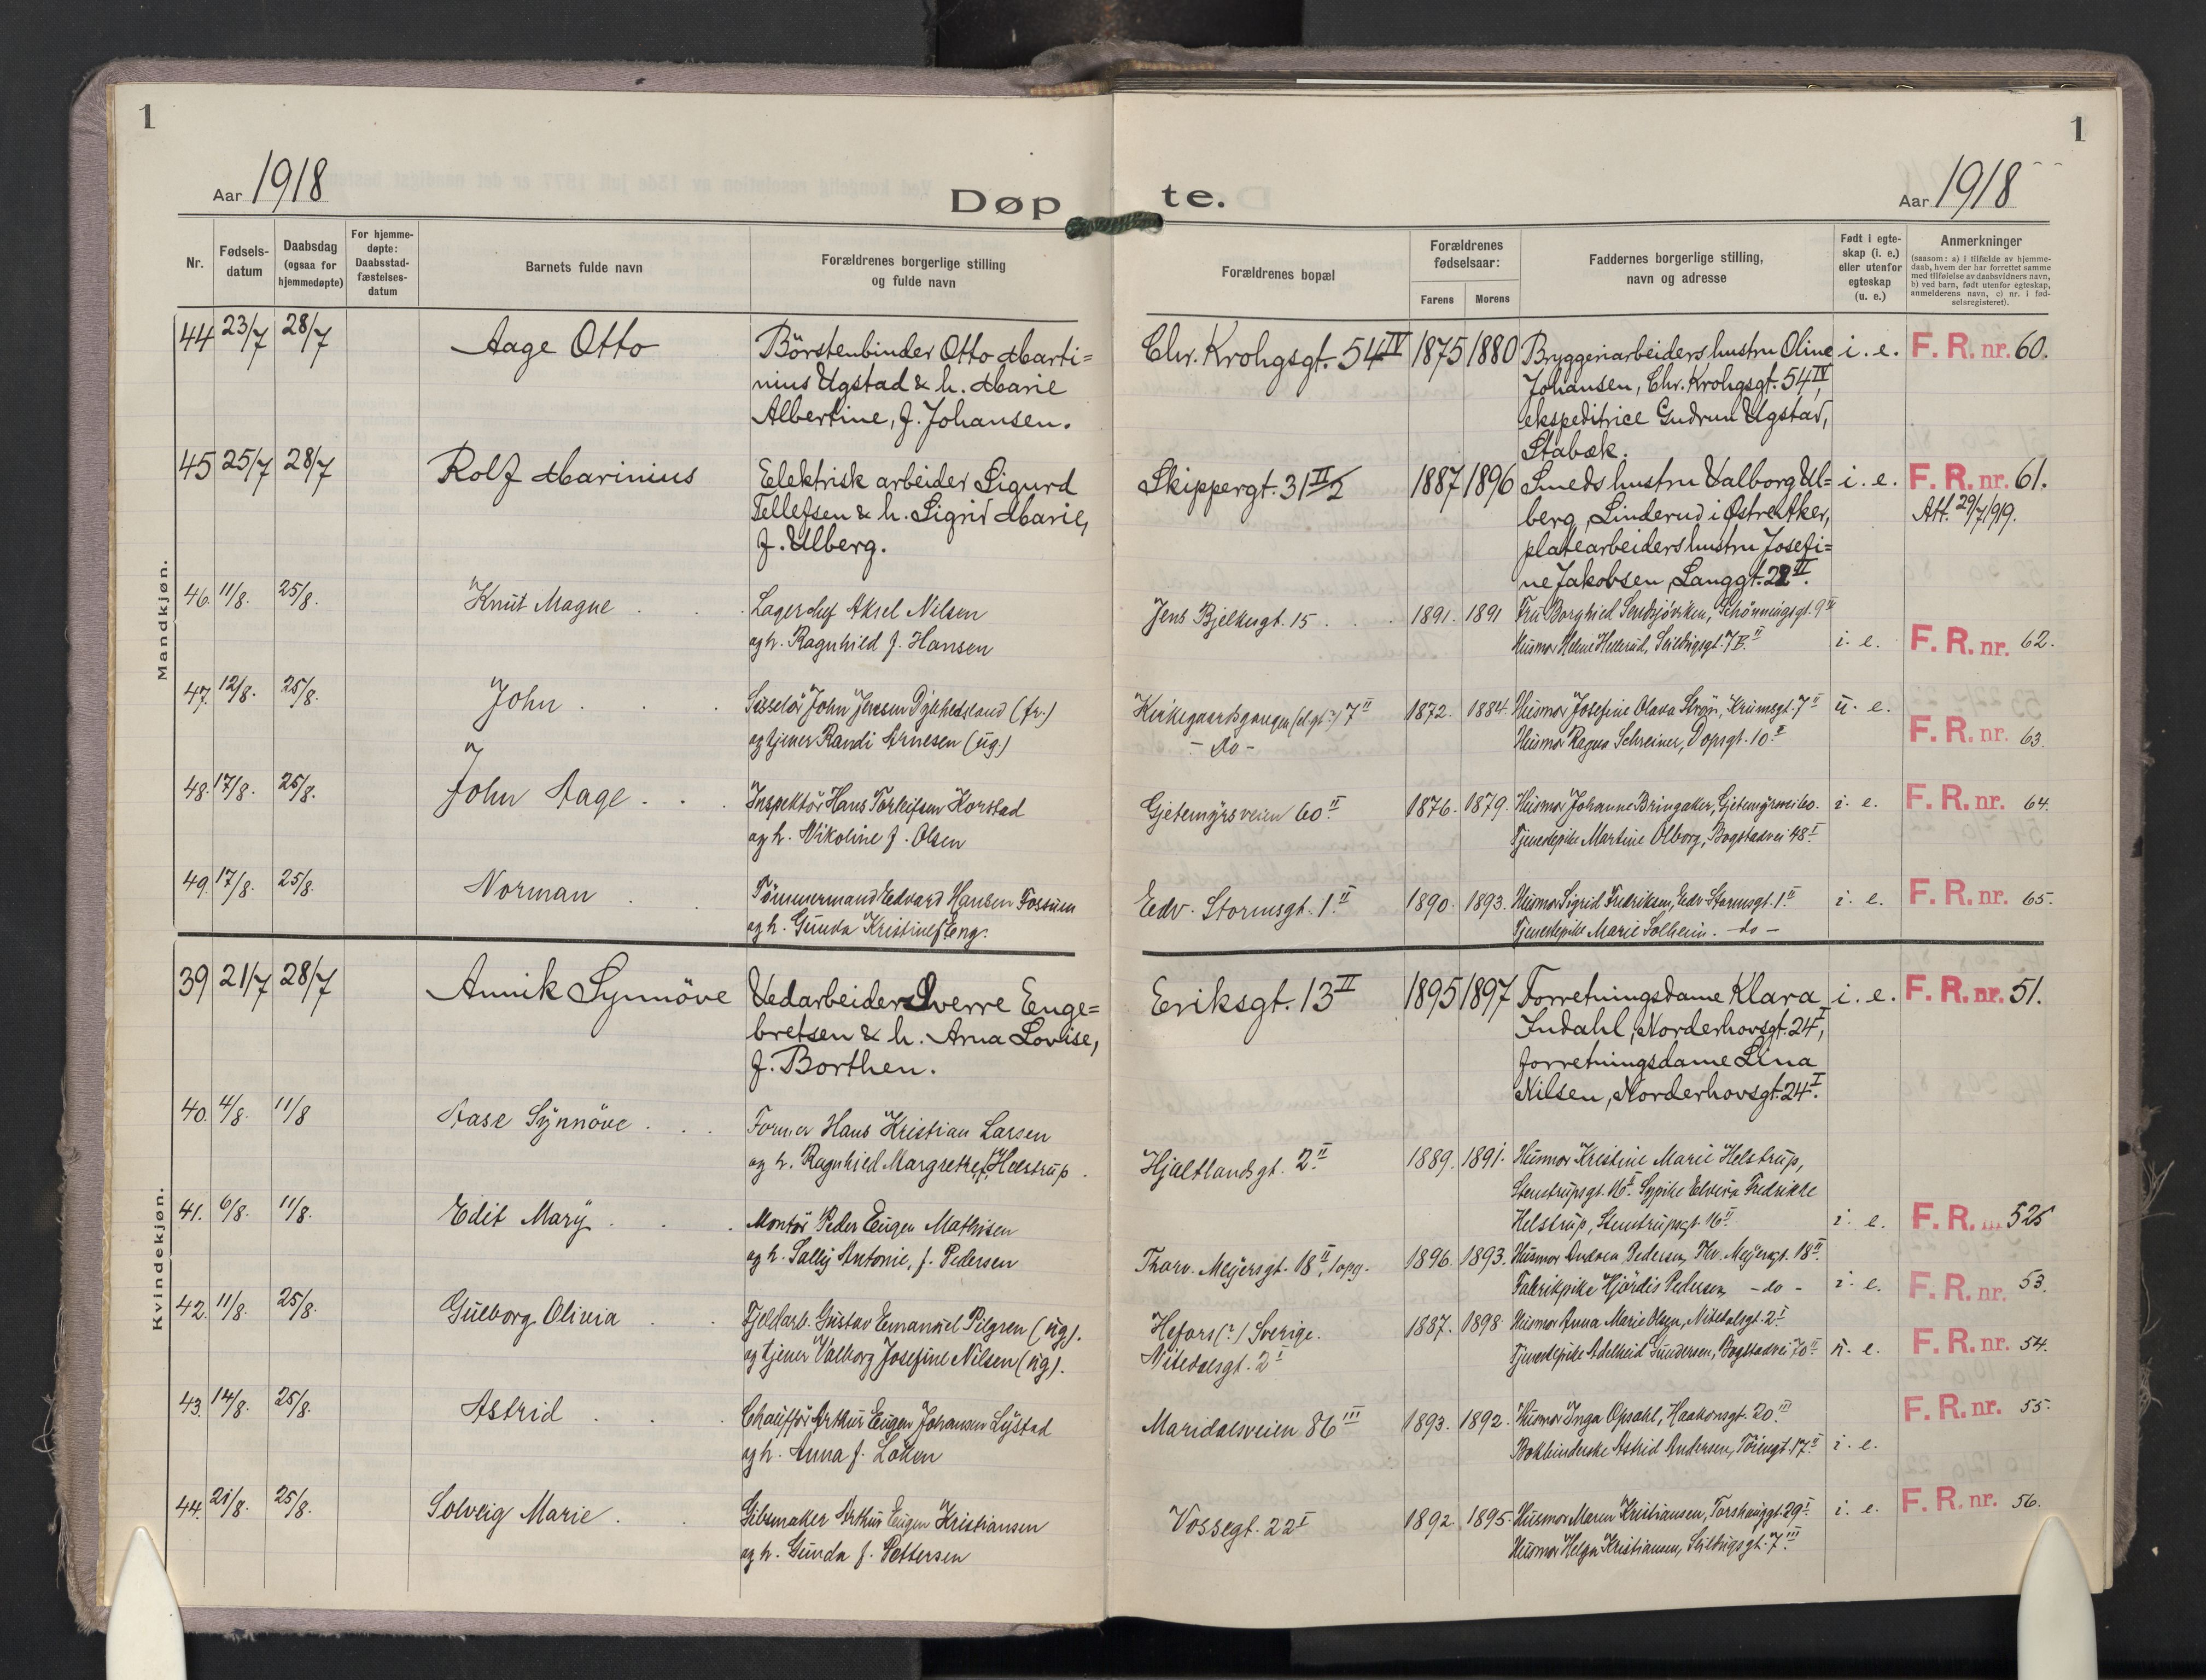 1
1
Aar 1918
Døpte.
Aar 1918
Nr.
Fødsels-
datum
Daabsdag
(ogsaa for
hjemmedøpte)
For hjemme-
døpte:
Daabsstad-
fæstelses-
datum
Barnets fulde navn
Forældrenes borgerlige stilling
og fulde navn
Forældrenes bopæl
Forældrenes
fødselsaar:
Farens Morens
Faddernes borgerlige stilling,
navn og adresse
Født i egte-
skap (i. e.)
eller utenfor
egteskap
(u. e.)
Anmerkninger
(saasom: a) i tilfælde av hjemme-
daab, hvem der har forrettet samme
med tilføielse av daabsvidners navn,
b) ved barn, født utenfor egteskap,
anmelderens navn, c) nr. i fød-
selsregisteret).
Mandkjøn.
44 23/7 28/7 Aage Otto Börstenbinder Otto Marti= Chr. Krohgsgt. 54 IV 1875 1880 Bryggeriarbeiders hustru Oline i. e. F. R. nr. 60.
nius Ugstad & h. Marie Johansen, Chr. Krohgsgt. 54 IV,
Albertine, f. Johansen. ekspeditrice Gudrun Ugstad,
Stabæk.
45 25/7 28/7 Rolf Marinius Elektrisk arbeider Sigurd Skippergt. 31 II 1887 1896 Smeds hustru Valborg Ul= i. e. F. R. nr. 61.
Tellefsen & h. Sigrid Marie, berg, Linderud i Østre Aker, Att. 29/7 1919.
f. Ulberg. platearbeiders hustru Josefi=
ne Jakobsen, Langgt. 22 II.
46. 11/8. 25/8. Knut Magne Lagerchef Aksel Nilsen Jens Bjelkesgt. 15 1891. 1891 Fru Borghild Schönningsgt. 9 II
og h. Ragnhild f. Hansen Husmor Helene Hellerud, i. e. F. R. nr. 62.
47. 12/8. 25/8. John John Jensen (fr.) Kirkegaardsgangen 7 II 1872. 1884. Husmor Josefine Olava Ström, Krumsgt. 7 II u. e.
og tjener Randi Arnesen (ug.) - do - Husmor Ragna Schreiner, Dopsgt. 10 I F. R. nr. 63.
48. 17/8. 25/8. John Aage Inspektör Hans Torleifsen Korstad Gjetemyrsveien 60 II 1876. 1879. Husmor Johanne Bringaker, Gjetemyrsvei 60. i. e. F. R. nr. 64.
og h. Nikoline f. Olsen Tjenestepike Martine Olborg, Bogstadvei 48 I
49. 17/8. 25/8. Norman Tømmermand Edvard Hansen Fossum Edv. Stormsgt. 1. II 1890. 1893. Husmor Sigrid Fredriksen, Edv. Stormsgt. 1. II i. e. F. R. nr. 65.
og h. Gunda Kristine f. Eng. Tjenestepike Marie Solheim. - do -
Kvindekjøn.
39 21/7 28/7 Annik Synnöve Vedarbeider Sverre Enge= Eriksgt. 13 II 1895 1897 Forretningsdame Klara i. e. F. R. nr. 51.
bretsen & h. Arna Lovise, Indahl, Norderhovsgt. 24 I,
f. Borthen. forretningsdame Lina
Nilsen, Norderhovsgt. 24 I.
40. 4/8. 11/8 Aase Synnöve Former Hans Kristian Larsen
og h. Ragnhild Margrethe f. Helstrup. Hjaltlandsgt. 2 II 1889. 1891. Husmor Kristine Marie Helstrup,
Stenstrupsgt. 16 II. Sypike Elvira Fredrikke
Helstrup, Stenstrupsgt. 16 II i. e. F. R. 52
41. 6/8. 11/8. Edit Mary Montör Peder Eugen Mathisen
og h. Sally Antonie, f. Pedersen Thorv. Meyersgt. 18 II, 1 opg. 1896. 1893. Husmor Pedersen, Thv. Meyersgt. 18 II.
Fabrikpike Hjördis Pedersen - do - i. e. F. R. nr. 53.
42. 11/8. 25/8. Gulborg Olivia Fjeldarb. Gustav Emanuel Pilgren (ug). Hofors (?) Sverige. 1887. 1898 Husmor Anna Marie Olsen, Nitedalsgt. 2 I
og tjener Valborg Josefine Nilsen (ug). Nitedalsgt. 2 I Tjenestepike Adelheid Gundersen, Bogstadvei 70 II u. e. F. R. nr. 54.
43. 14/8. 25/8. Astrid Chauffør Arthur Eugen Johansen Lystad Maridalsveien 86 III 1893. 1892. Husmor Inga Opsahl, Haakonsgt. 20 III F. R. nr. 55.
og h. Anna f. Löken Bokbinderske Astrid Andersen, Töiengt. 17 II i. e.
44. 21/8. 25/8. Solveig Marie Gibsmaker Arthur Eugen Kristiansen Vossegt. 22 I 1892. 1895. Husmor Maren Kristiansen, Torshauggt. 29 I i. e. F. R. nr. 56.
og h. Gunda f. Pettersen Husmor Helga Kristiansen, 7 III